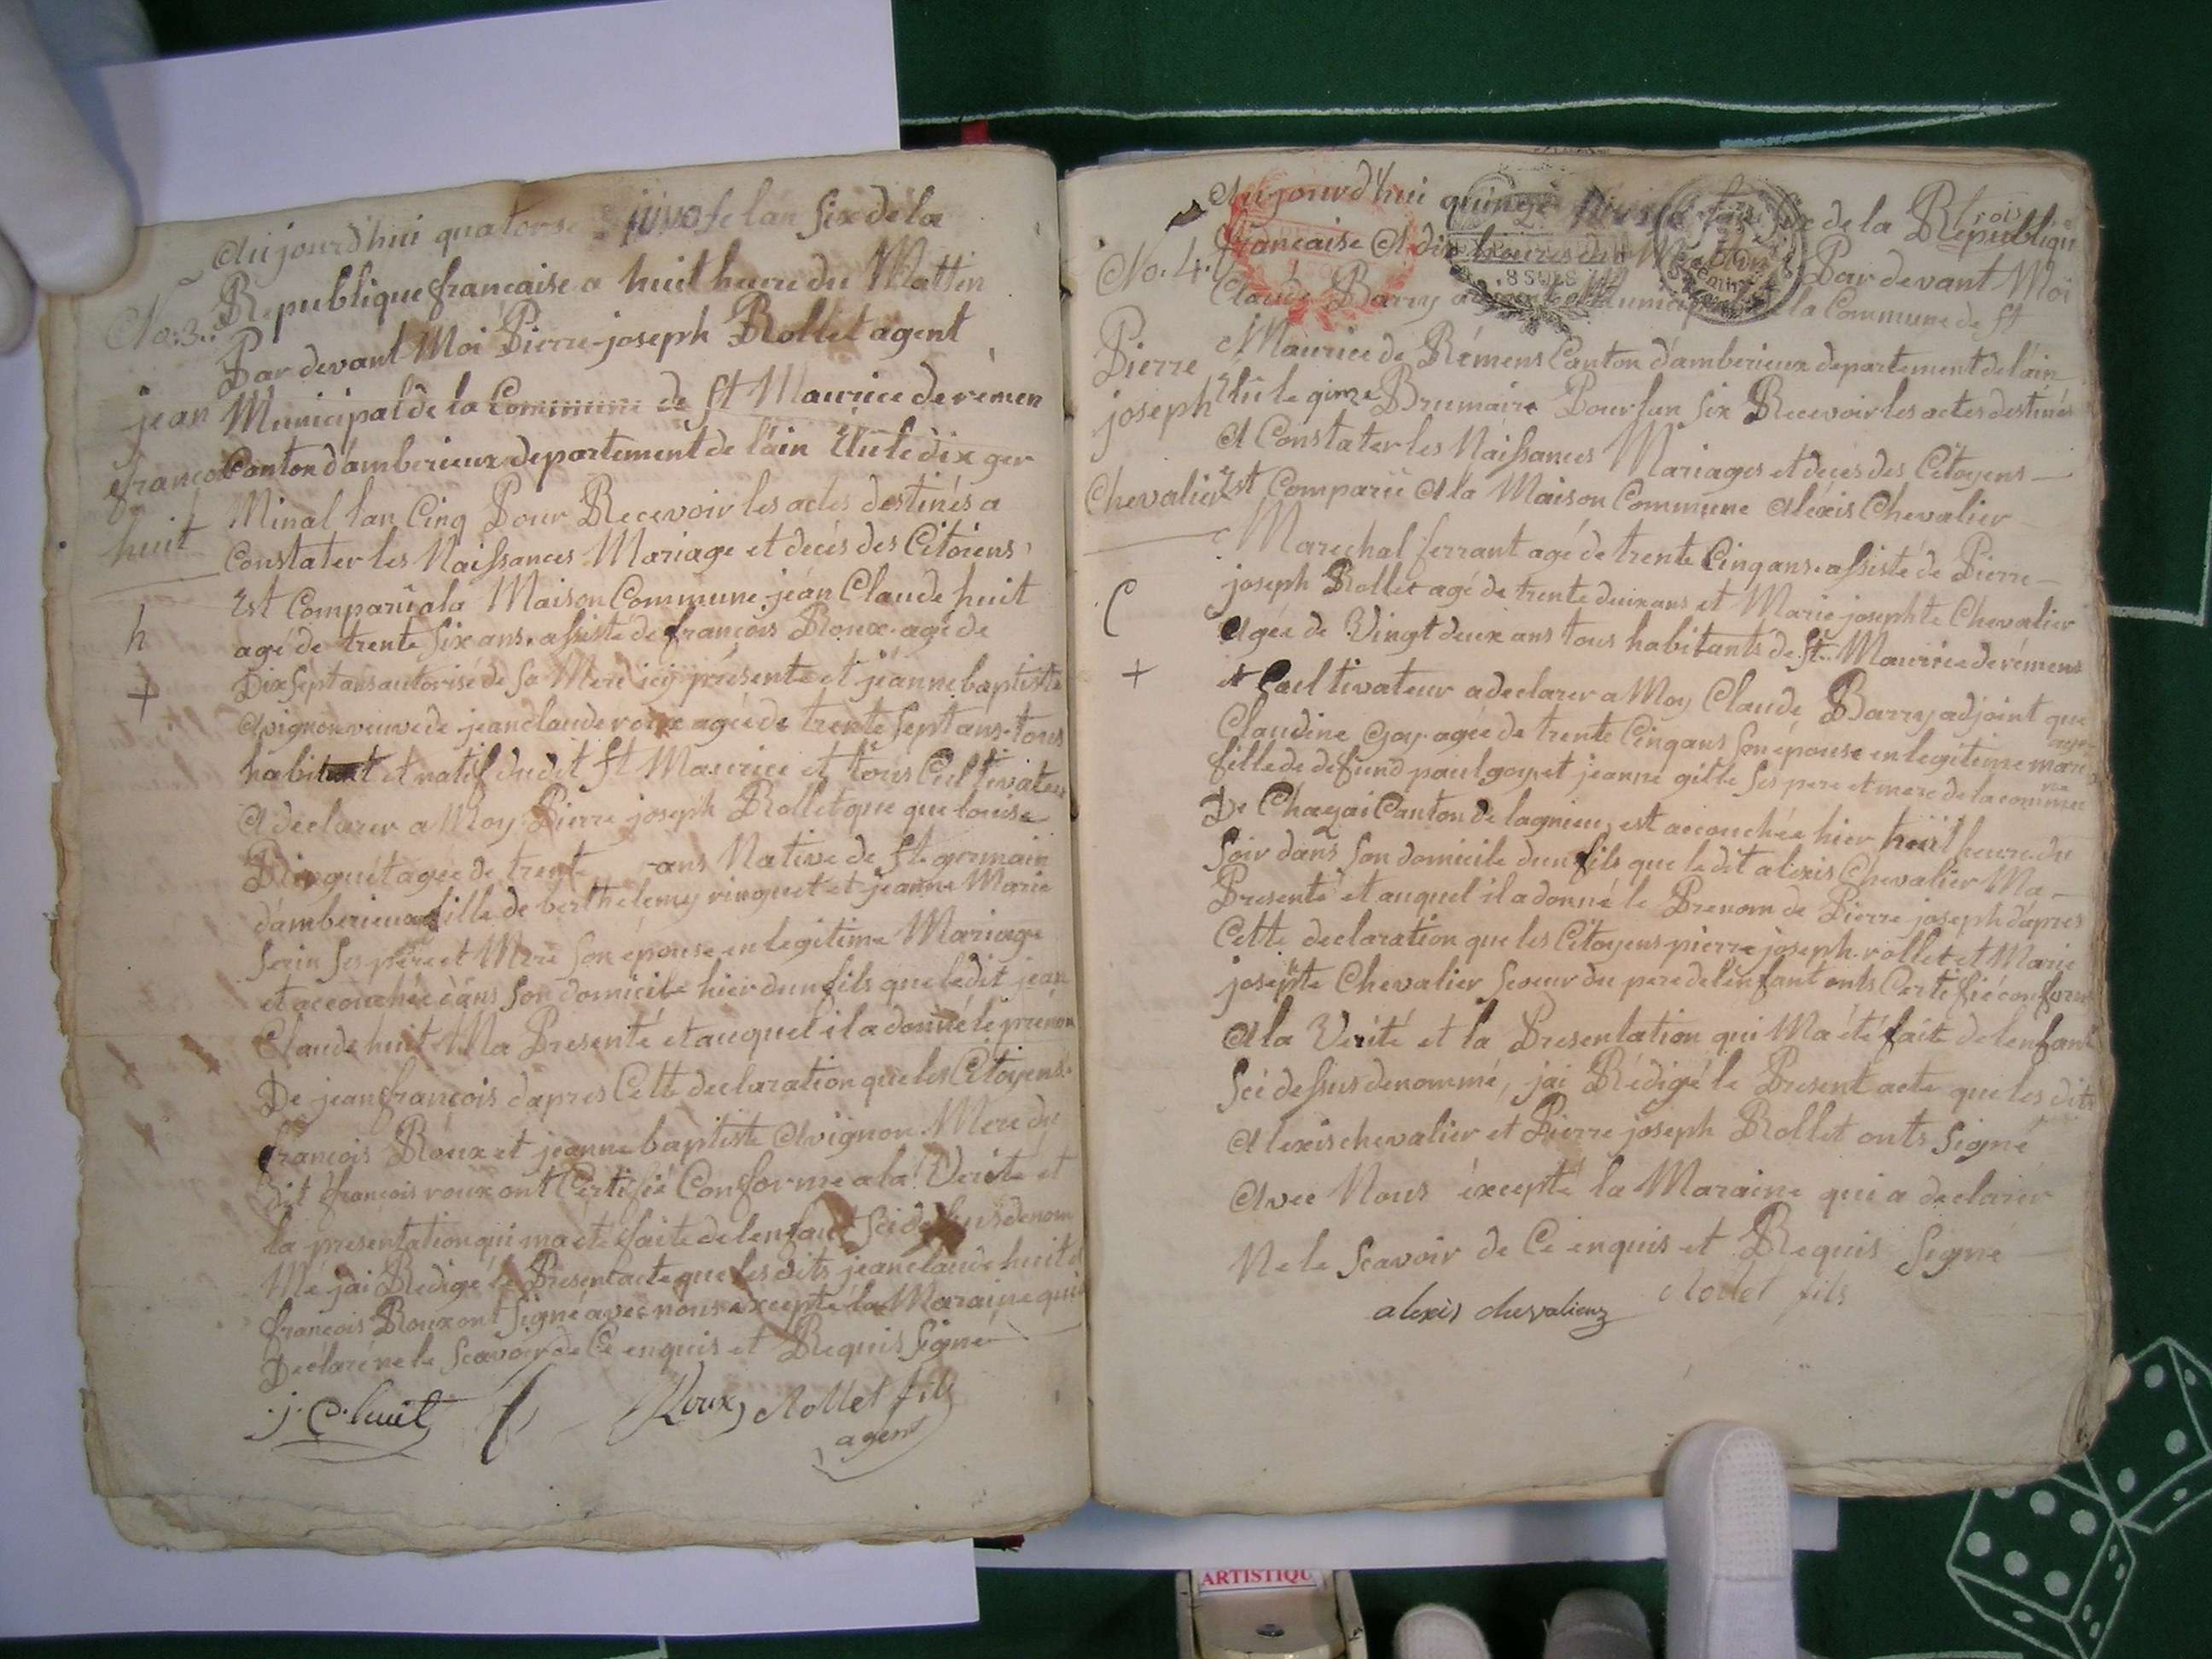 Aujourdhui quatorse nivose lan Six de la
No. 3.
Republique francaise a huit heure du Mattin
Par devant Moi Pierre-joseph Rollet agent
jean
Municipal de la Commune de St Maurice de rémen
francois
Canton d'amberieux departement de l'ain Elü le dix ger
huit
Minal lan Cinq Pour Recevoir les actes destinés a
Constater les Naissances Mariage et décés des Citoiens
Est Comparü a la Maison Commune jean Claude huit
h
agé de trente Six ans assisté de francois Roux agé de
+
Dix Sept ans autorisé de Sa Mere icy présente et jeanne baptiste
Avignon veuve de jean claude roux agée de trente Sept ans tous
habitant et natif du dit St Maurice et tous Cultivateur
A declarer a Moy Pierre joseph Rollet que que louise
Ringuét agée de trente ans Native de St germain
d'amberieux fille de berthelemy ringuet et jeanne Marie
Serin Ses pere et Mere Son épouse en legitime Mariage
et accouchée dans Son domicile hier dun fils que le dit jean
Claude huit Ma Presenté et auquel il a donné le prénom
De jean francois d'apres Cette declaration que les Citoyens
francois Roux et jeanne baptiste Avignon Mere du
Dit francois roux ont Certifié Conforme a la Verite et
la presentation qui ma été faite de lenfant Sci dessus denom
Mé jai Redigé le Present acte que les dits jean claude huit et
francois Roux ont Signé avec nous excepté la Maraine qui a
Déclaré ne le Scavoir de Ce enquis et Requis Signe
j. C. huit Roux Rollet fils
agent
Aujourd'hui quinze Nivose lan Six de la Republique
No. 4.
francaise A dix heures du Matin Par devant Moi
Claude Barry adjoint Municipal de la Commune de St
Pierre
Maurice de Rémens Canton d'amberieux departement de l'ain
joseph
Elü le qinze Brumaire Pour lan Six Recevoir les actes destinés
A Constater les Naissances Mariages et décés des Citoyens
Chevalier
Est Comparü A la Maison Commune Aléxis Chevalier
Marechal ferrant agé de trente Cinq ans assisté de Pierre
C
joseph Rollet agé de trente deux ans et Marie josephte Chevalier
Agée de Vingt deux ans tous habitants de St Maurice de rémens
+
et Coultivateur a declarer a Moy Claude Barry adjoint que
Claudine Goy agée de trente Cinq ans Son épouse en legitime mariage
fille de defund paul goy et jeanne gille Ses pere et mere de la commune
De Chazai Canton de lagnieu, est accouchée hier huit heure du
Soir dans Son domicile dun fils que le dit alexis Chevalier Ma
Presenté et auquel il a donné le Prenom de Pierre joseph d'apres
Cette declaration que les Citoyens pierre joseph rollet et Marie
josephte Chevalier Soeur du pere de lenfant onts Certifié conforme
A la Verité et la Presentation qui Ma été faite de lenfant
Sci dessus denommé, jai Rédigé le Present acte que les dits
Alexis chevalier et Pierre joseph Rollet onts Signé
Avec Nous éxcepté la Maraine qui a declarér
Ne le Scavoir de Ce enquis et Requis Signé
alexis chevalier Rollet fils
ARTISTIQU